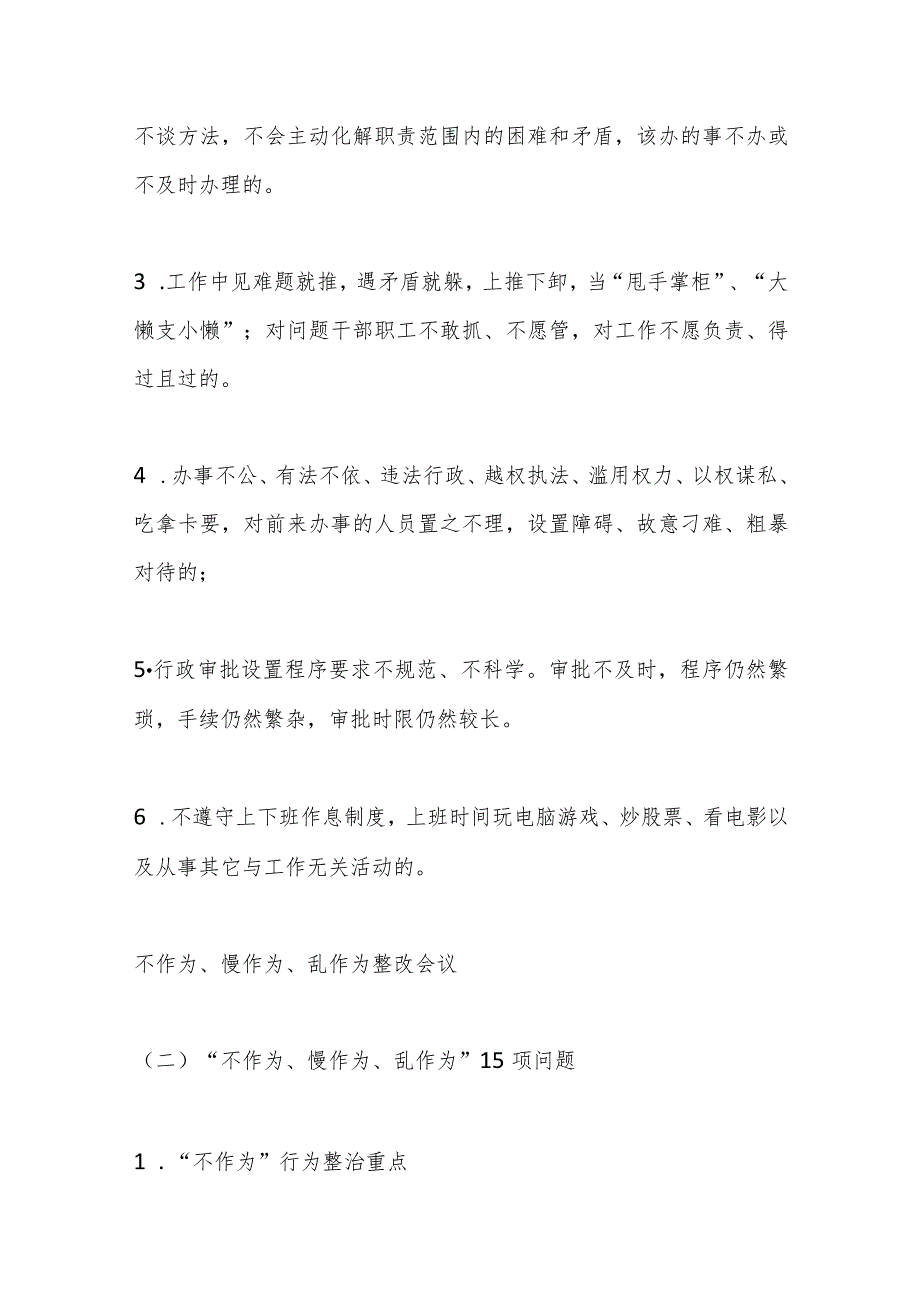 不谈方法，不会主动化解职责范围内的困难和矛盾，该办的事不办或
不及时办理的。
3 .工作中见难题就推，遇矛盾就躲，上推下卸，当“甩手掌柜”、“大
懒支小懒”；对问题干部职工不敢抓、不愿管，对工作不愿负责、得
过且过的。
4 .办事不公、有法不依、违法行政、越权执法、滥用权力、以权谋私、
吃拿卡要，对前来办事的人员置之不理，设置障碍、故意刁难、粗暴
对待的；
5•行政审批设置程序要求不规范、不科学。审批不及时，程序仍然繁
琐，手续仍然繁杂，审批时限仍然较长。
6 .不遵守上下班作息制度，上班时间玩电脑游戏、炒股票、看电影以
及从事其它与工作无关活动的。
不作为、慢作为、乱作为整改会议
（二）“不作为、慢作为、乱作为”15 项问题
1 .“不作为”行为整治重点